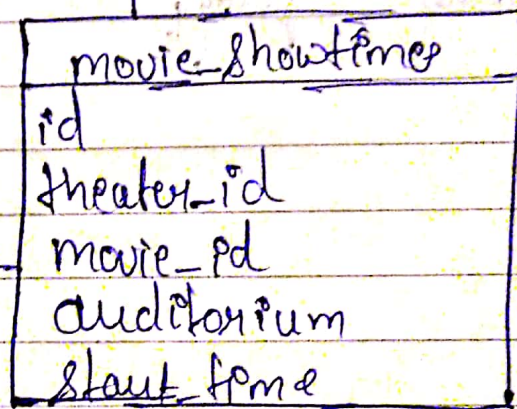 movie_showtimes
id
theater_id
movie_id
auditorium
start_time